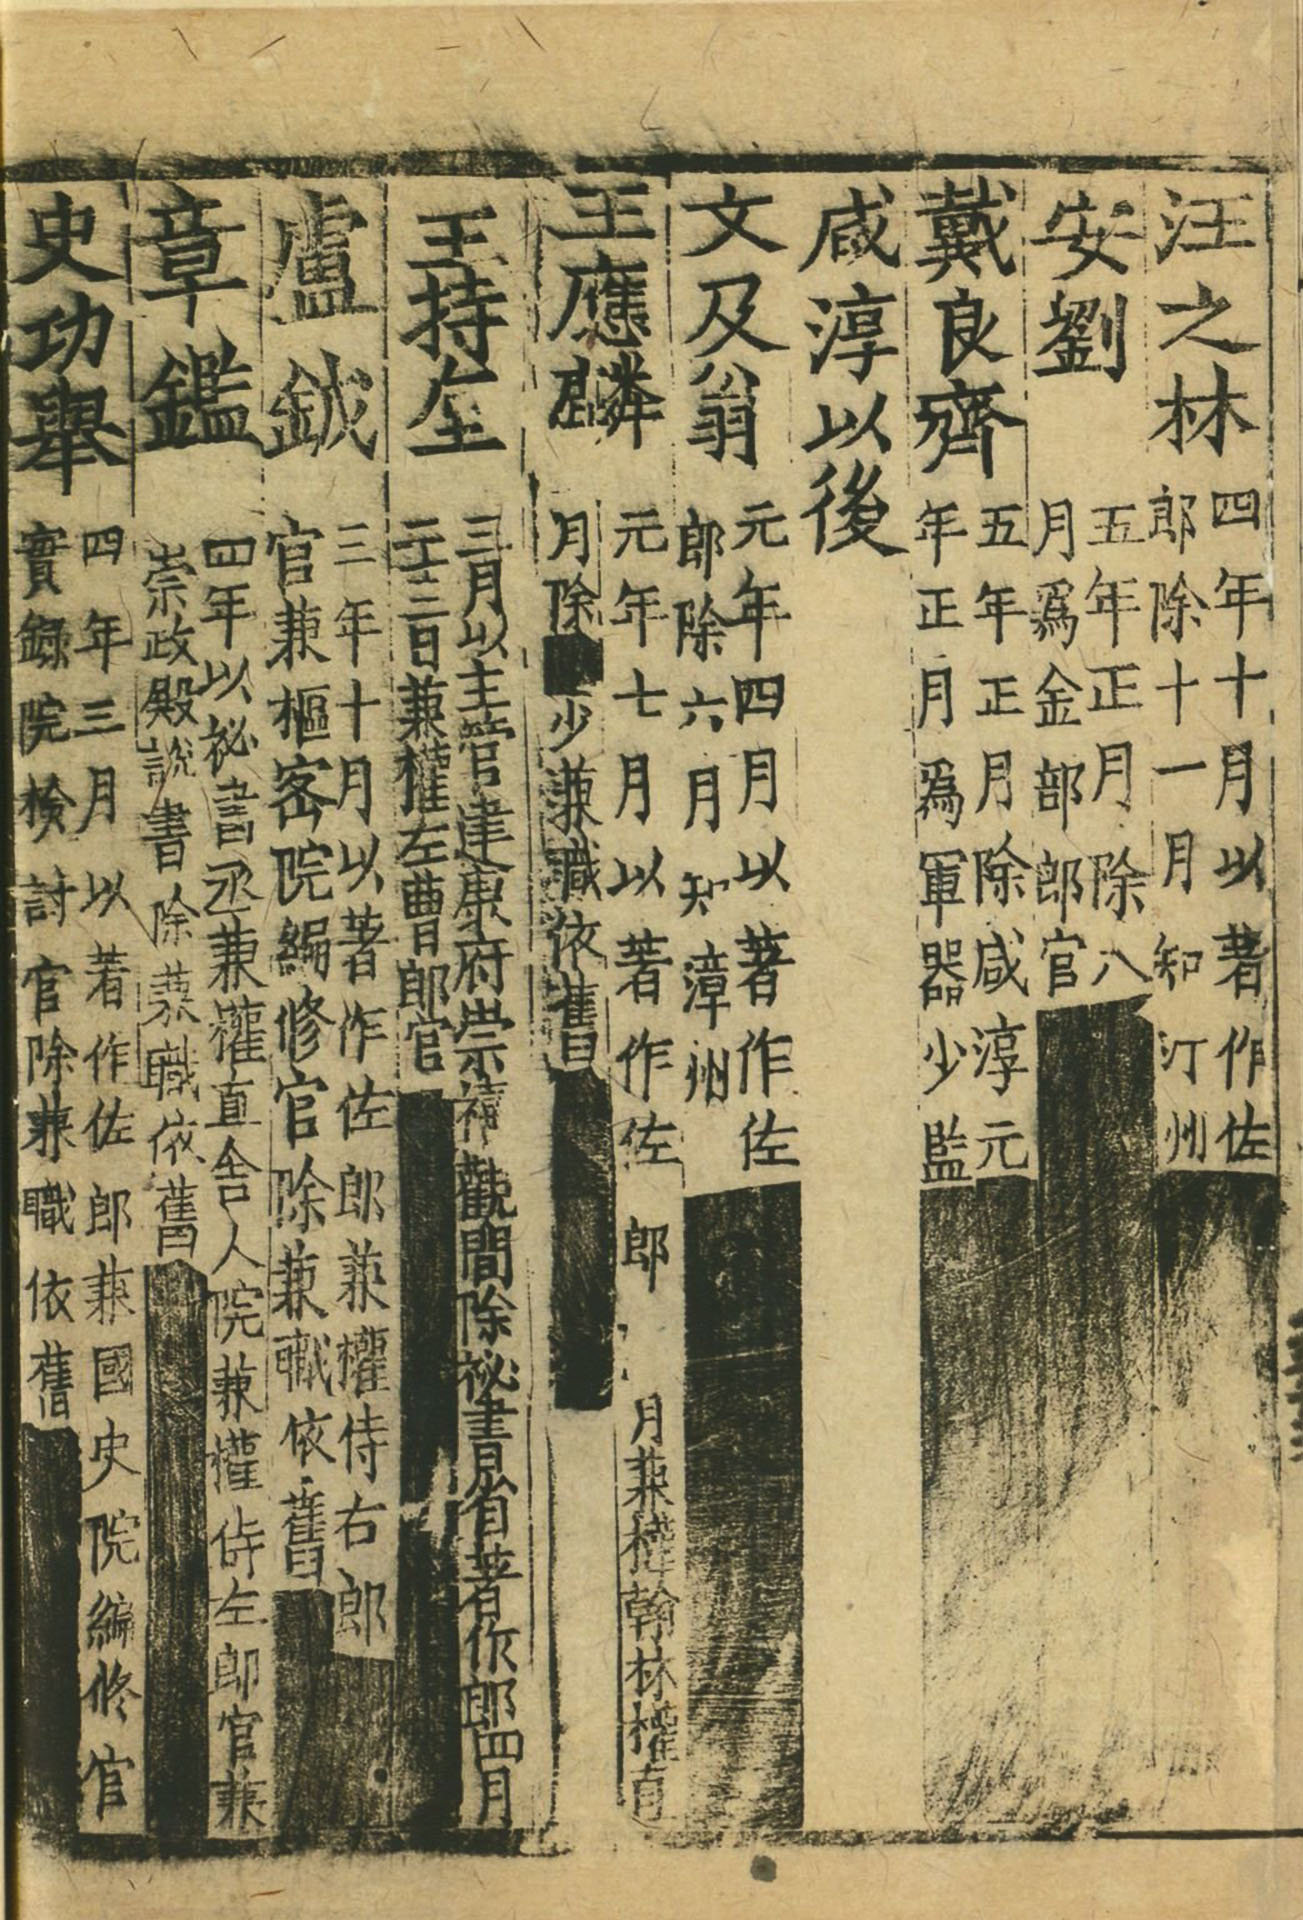 汪之林
四年十月以著作佐
郎除十一月知汀州
安劉
五年正月除八
月爲金部郎官
戴良齊
五年正月除咸淳元
年正月爲軍器少監
咸淳以後
文及翁
元年四月以著作佐
郎除六月知漳州
王應麟
元年七月以著作佐郎 月兼權翰林權直
月除 少兼職依舊
王持垕
三月以主管建康府崇禧觀間除祕書省著作郎四月
二十三日兼權左曹郎官
盧鉞
三年十月以著作佐郎兼權侍右郎
官兼樞密院編修官除兼職依舊
章鑑
四年以祕書丞兼權直舍人院兼權侍左郎官兼
崇政殿說書除兼職依舊
史功舉
四年三月以著作佐郎兼國史院編修官
實錄院檢討官除兼職依舊